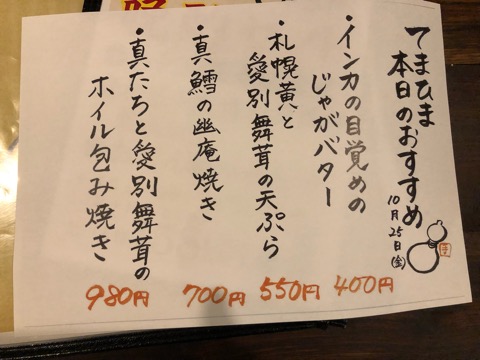 てまひま
本日のおすすめ
10月25日(金)
・インカの目覚めの
じゃがバター
400円
・札幌黄と
愛別舞茸の天ぷら
550円
・真鱈の幽庵焼き
700円
・真たちと愛別舞茸の
ホイル包み焼き
980円